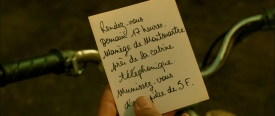 Rendez-vous
demain 17 heures.
Manège de Montmartre
près de la cabine
téléphonique
Munissez-vous
de 5 F.